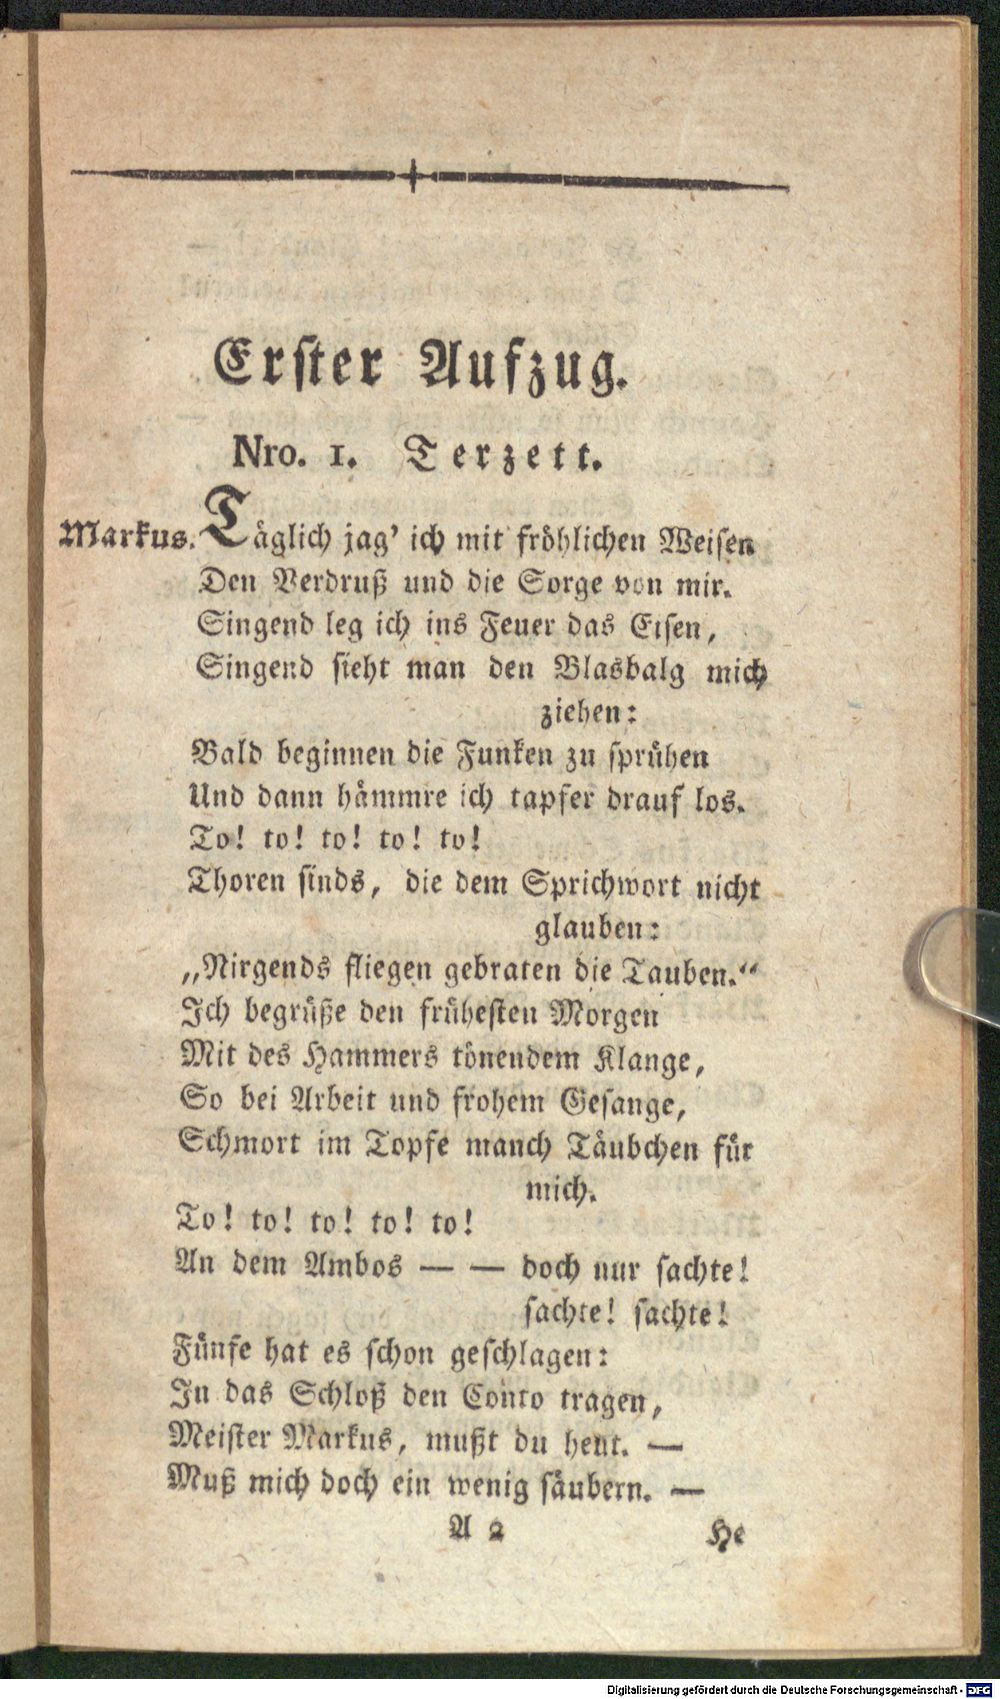 Erster Aufzug.
Nro. 1. Terzett.
Markus. Täglich jag' ich mit fröhlichen Weisen
Den Verdruß und die Sorge von mir.
Singend leg ich ins Feuer das Eisen,
Singend sieht man den Blasbalg mich
ziehen:
Bald beginnen die Funken zu sprühen
Und dann hämmre ich tapfer drauf los.
To! to! to! to! to!
Thoren sinds, die dem Sprichwort nicht
glauben:
„Nirgends fliegen gebraten die Tauben.“
Ich begrüße den frühesten Morgen
Mit des Hammers tönendem Klange,
So bei Arbeit und frohem Gesange,
Schmort im Topfe manch Täubchen für
mich.
To! to! to! to! to!
An dem Ambos — — doch nur sachte!
sachte! sachte!
Fünfe hat es schon geschlagen:
In das Schloß den Conto tragen,
Meister Markus, mußt du heut. —
Muß mich doch ein wenig säubern. —
A 2 He
Digitalisierung gefördert durch die Deutsche Forschungsgemeinschaft - DFG